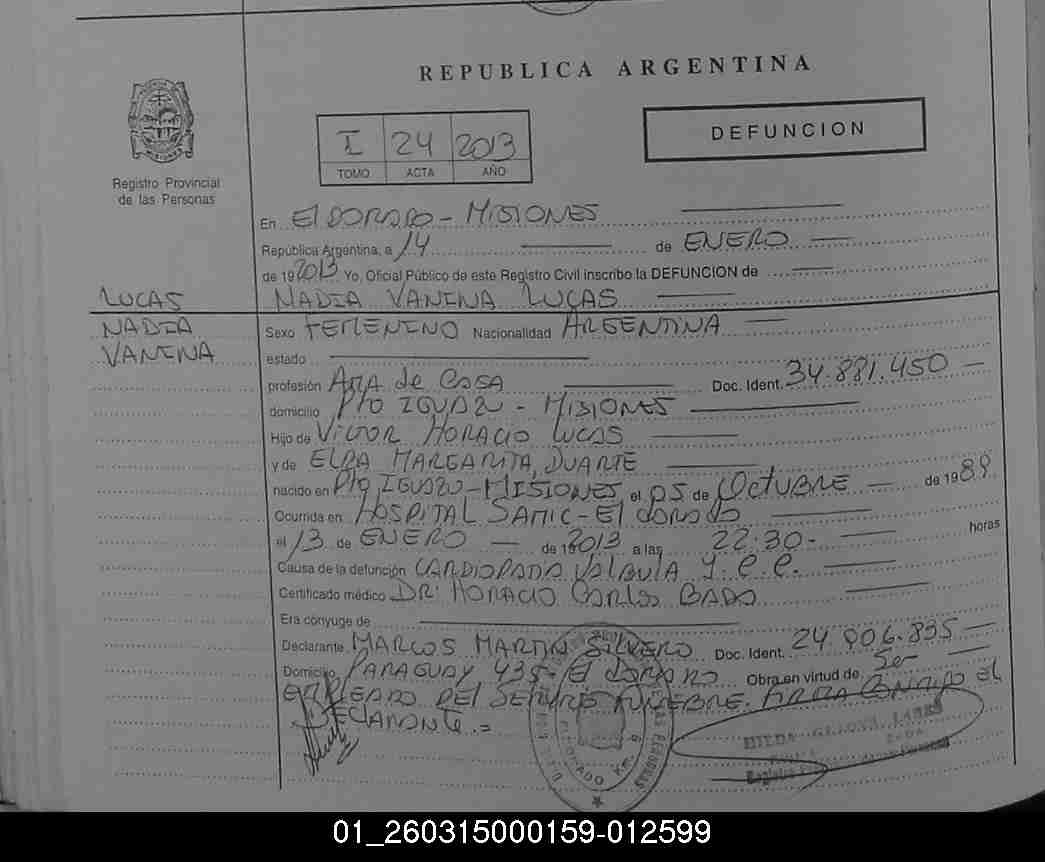 REPUBLICA ARGENTINA
I 24 2013
TOMO ACTA AÑO
DEFUNCION
Registro Provincial
de las Personas
En ElDORADO - MISIONES
República Argentina, a 14 de ENERO
de 19 2013 Yo, Oficial Público de este Registro Civil inscribo la DEFUNCION de
LUCAS
NADIA
VANINA
NADIA VANINA LUCAS
Sexo FEMENINO Nacionalidad ARGENTINA
estado
profesión AMA de CASA Doc. Ident. 34.881.450
domicilio Pto IGUAZU - MISIONES
Hijo de VICTOR HORACIO LUCAS
y de ELBA MARGARITA, DUARTE
nacido en Pto IGUAZU - MISIONES, el 05 de OCTUBRE de 1989.
Ocurrida en HOSPITAL SAMIC - El dorado
el 13 de ENERO de 19 2013 a las 22:30- horas
Causa de la defunción VALBULA
Certificado médico DR: HORACIO CARLOS BADO
Era cónyuge de
Declarante MARCOS MARTIN SILVERO Doc. Ident. 24.006.835
Domicilio PARAGUAY 435 - El DORADO Obra en virtud de Se-
EMPLEADO DEl SERVICIO FUNEBRE. FIRMA CONMIGO El
DECLARANTE.=
01_260315000159-012599